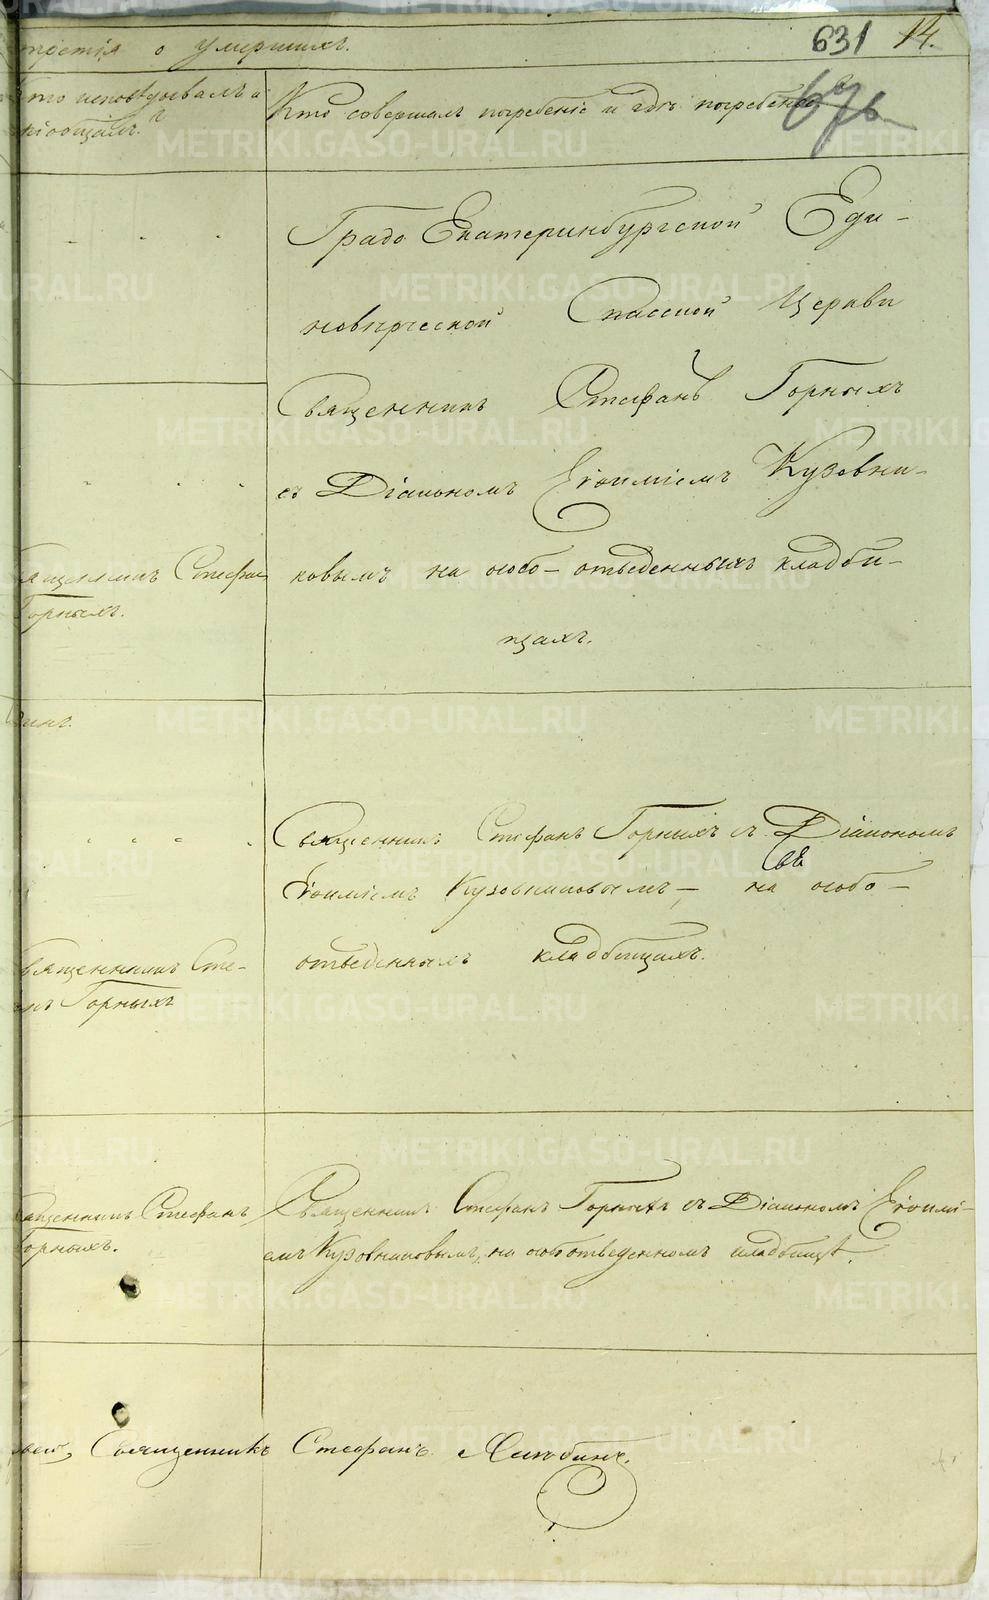 о умершихъ. 631 14.
Кто исповѣдывалъ и
пріобщалъ.
Кто совершалъ погребеніе и гдѣ погребены
Градо Екатеринбургской Еди-
новѣрческой Спасской Церкви
Священникъ Стефанъ Горныхъ
съ Діакономъ Евѳиміемъ Кузовни-
ковымъ на особо-отведенныхъ кладби-
щахъ.
Священникъ Стефанъ
Горныхъ.
Священникъ Стефанъ Горныхъ съ Діакономъ
Евѳиміемъ Кузовниковымъ - на особо-
отведенныхъ кладбищахъ.
Священникъ Сте-
анъ Горныхъ
Священникъ Стефанъ
Горныхъ.
Священникъ Стефанъ Горныхъ съ Діакономъ Евѳимі-
емъ Кузовниковымъ, на особоотведенномъ кладбищѣ.
Священникъ Стефанъ
METRIKI.GASO-URAL.RU